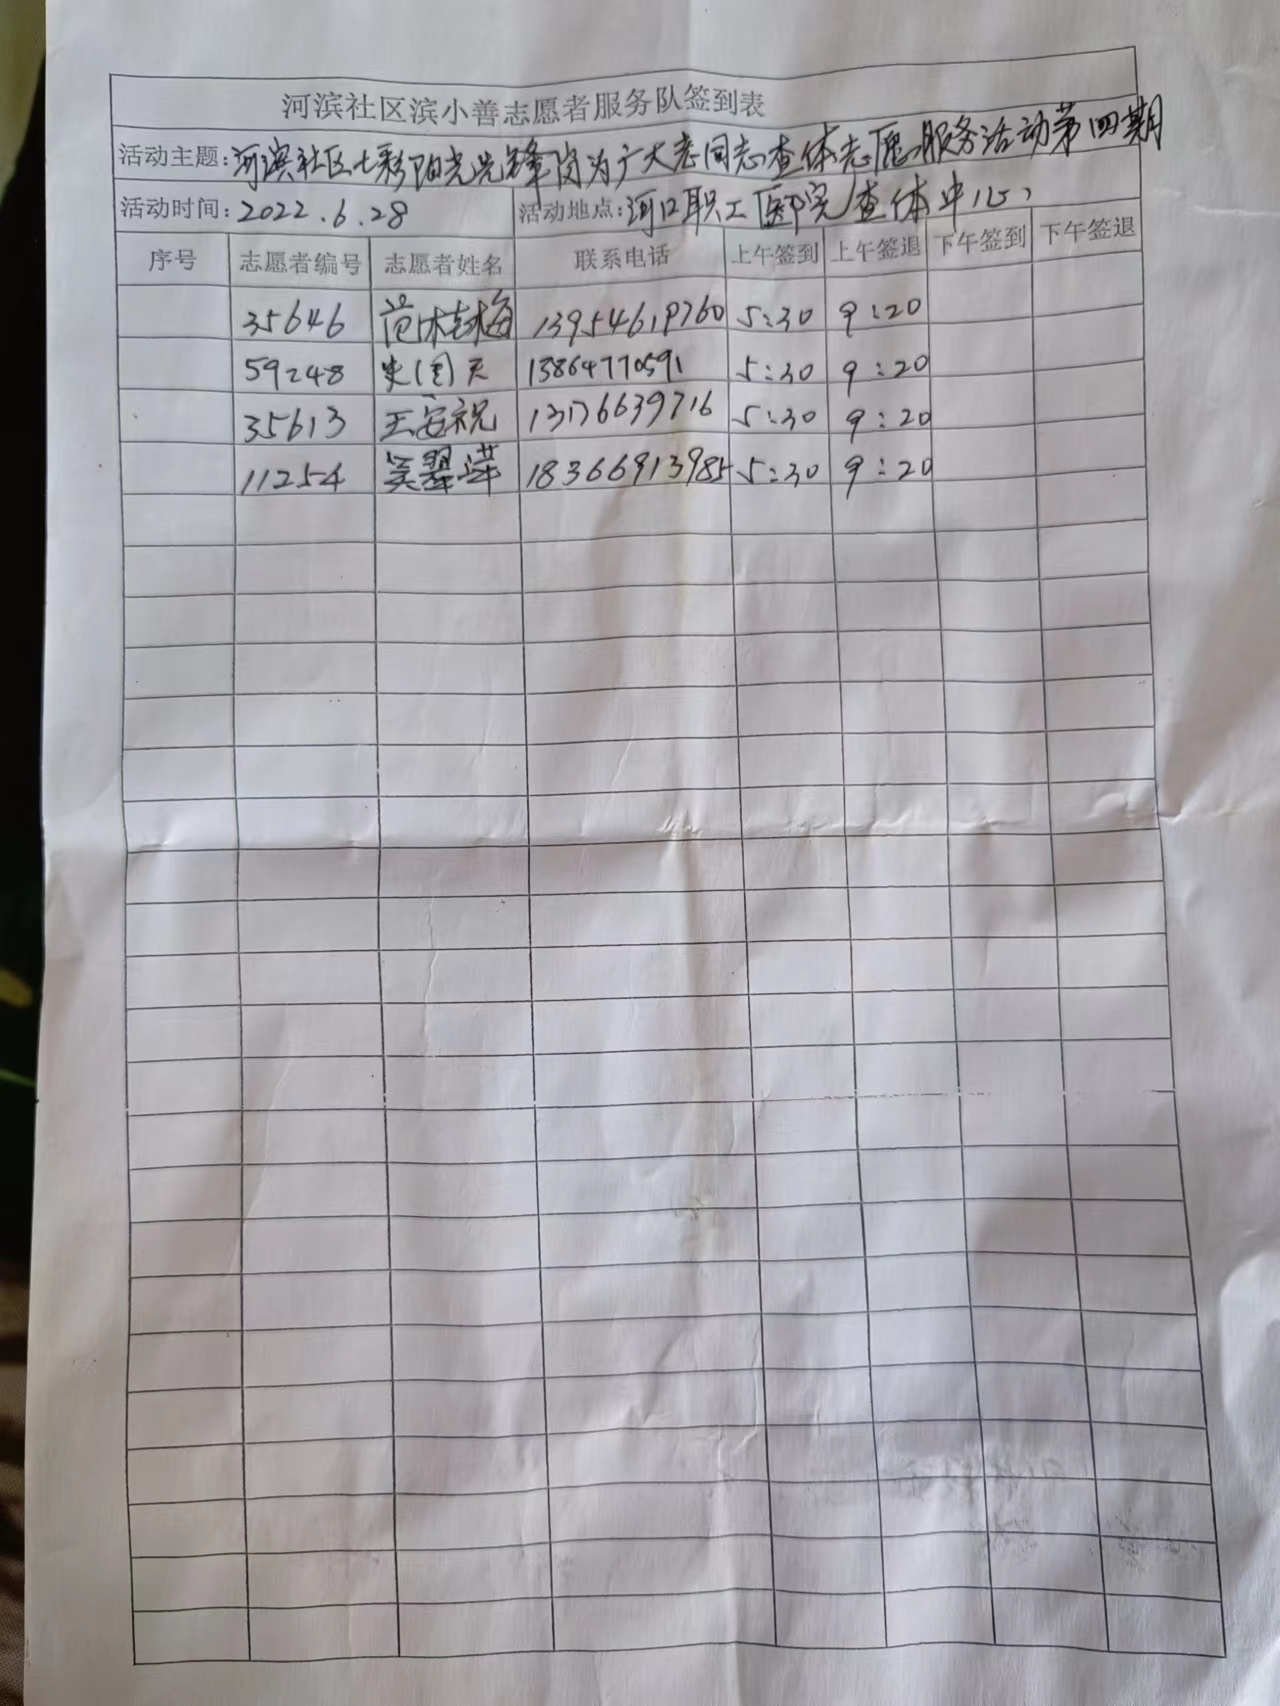 河滨社区滨小善志愿者服务队签到表
活动主题:河滨社区七彩阳光先锋岗为广大老同志查体志愿服务活动第四期
活动时间:2022.6.28 活动地点:河口职工医院查体中心
序号 志愿者编号 志愿者姓名 联系电话 上午签到 上午签退 下午签到 下午签退
35646 范林梅 5:30 9:20
59248 史国天 13864770591 5:30 9:20
35613 王安祝 13176639716 5:30 9:20
11254 吴翠萍 18366913985 5:30 9:20